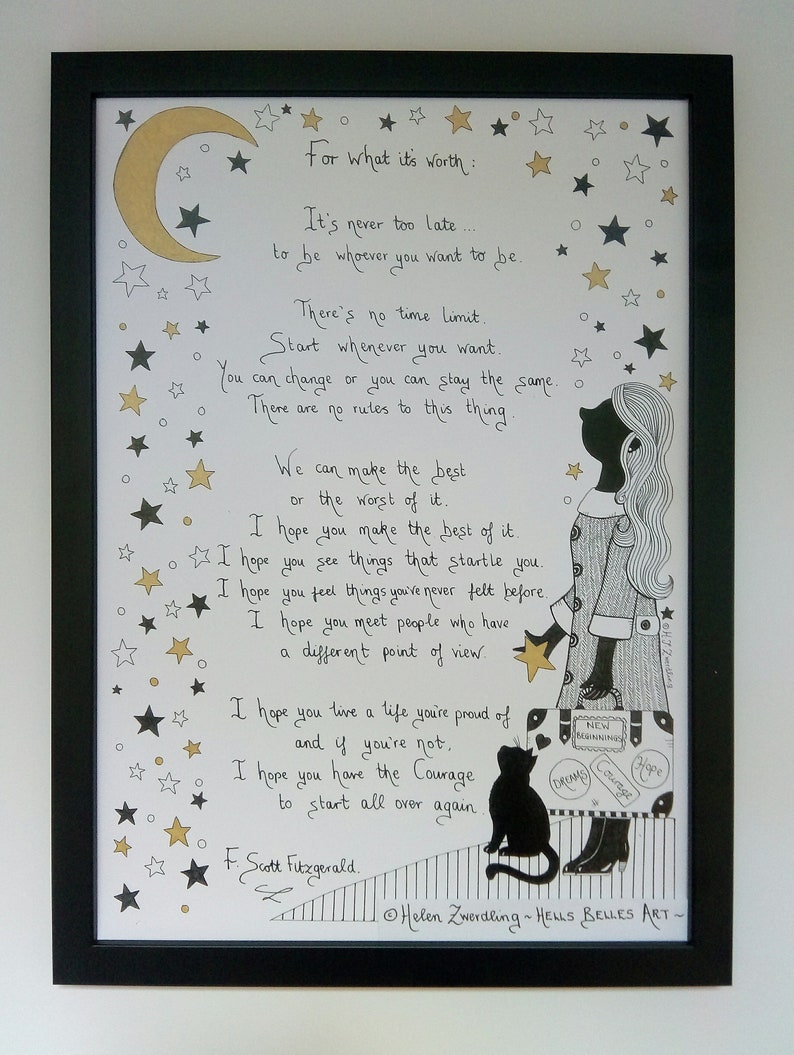 For what it's worth:
It's never too late...
to be whoever you want to be.
There's no time limit.
Start whenever you want.
You can change or you can stay the same.
There are no rules to this thing.
We can make the best
or the worst of it.
I hope you make the best of it.
I hope you see things that startle you.
I hope you feel things you've never felt before.
I hope you meet people who have
a different point of view.
I hope you live a life you're proud of
and if you're not,
I hope you have the Courage
to start all over again.
F. Scott Fitzgerald.
© H J Zwerdling
NEW
BEGINNINGS
DREAMS
Courage
Hope
© Helen Zwerdling ~ HELLS BELLES ART ~